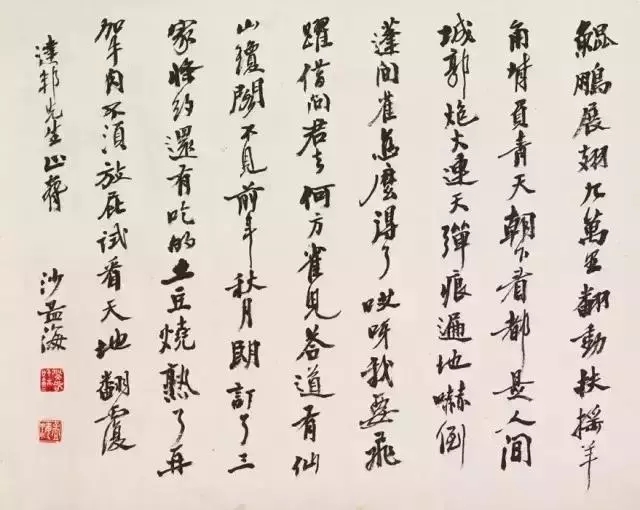 鯤鵬展翅九萬里翻動扶摇羊
角背負青天朝下看都是人间
城郭炮火連天彈痕遍地嚇倒
蓬间雀怎麽得了哎呀我要飛
躍借问君去何方雀兒答道有仙
山瓊閣不見前年秋月朗訂了三
家條約還有吃的土豆燒熟了再
加牛肉不須放屁試看天地翻覆
邦先生正
沙孟海